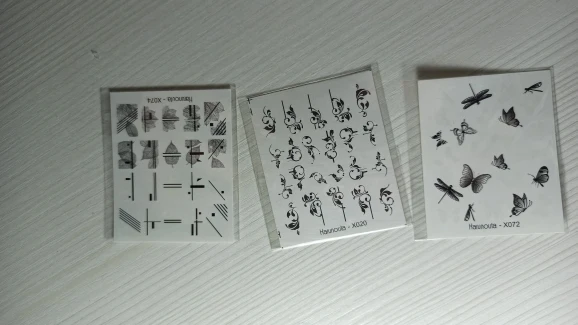 Harunouta - X074
Harunouta - X020
Harunouta - X072